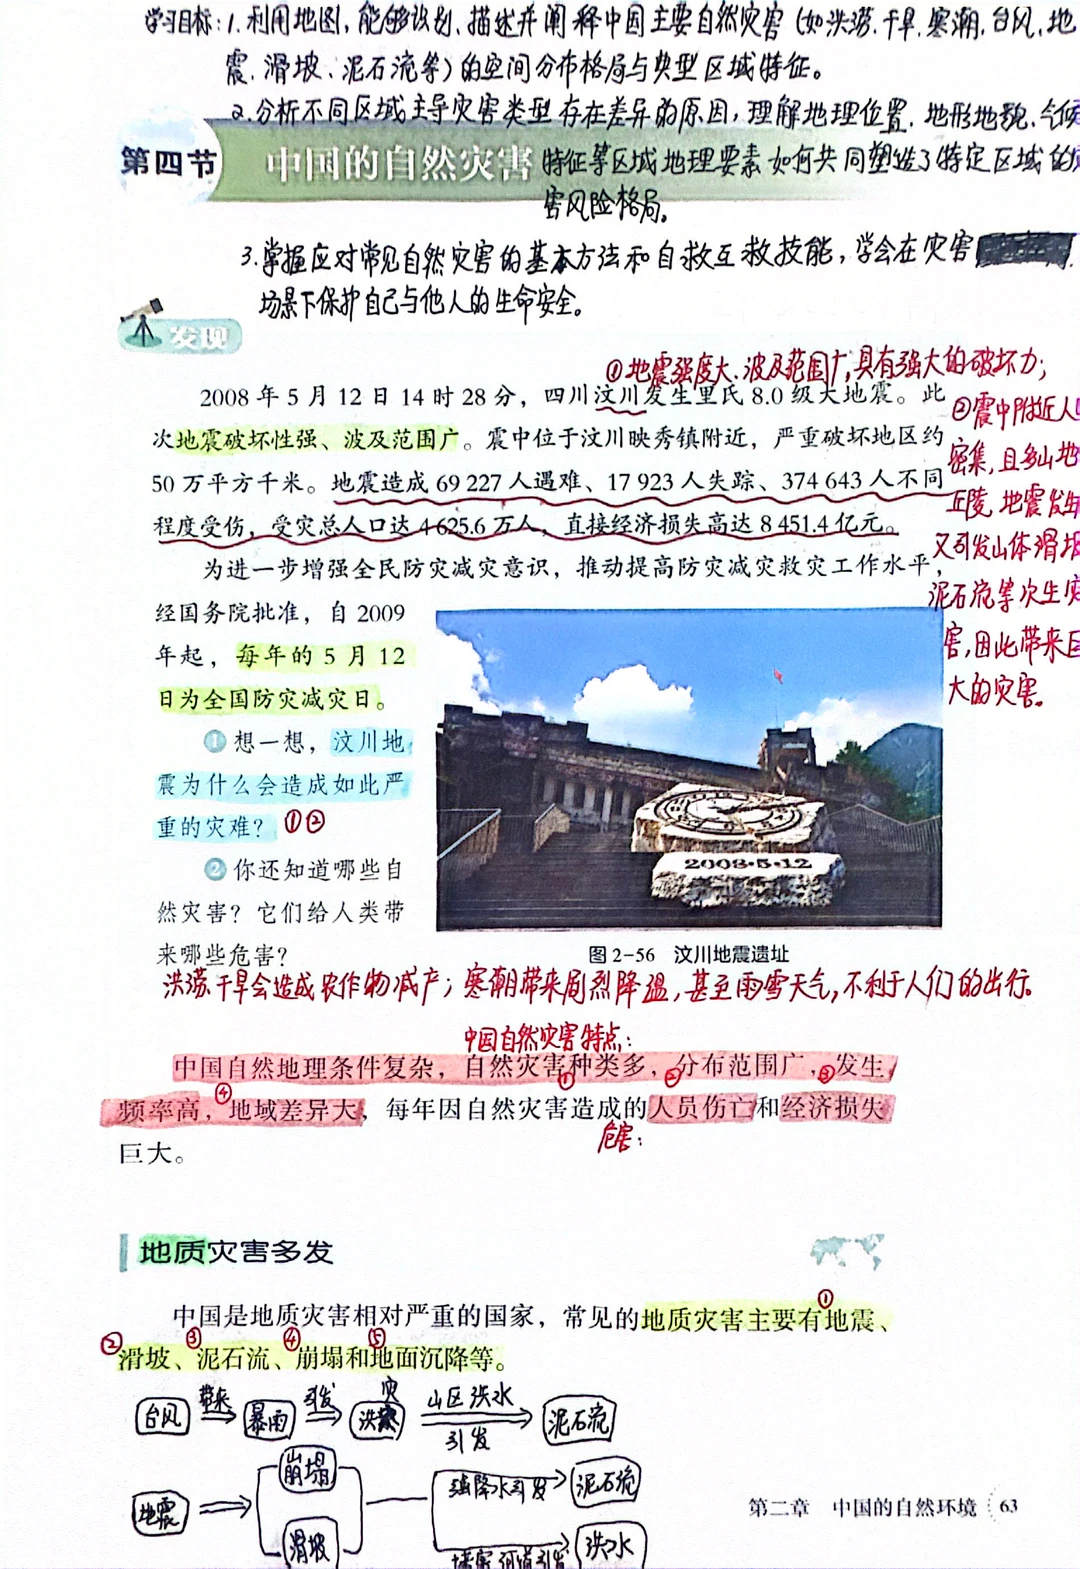 学习目标:1.利用地图,能够识别、描述并阐释中国主要自然灾害(如洪涝、干旱、寒潮、台风、地
震、滑坡、泥石流等)的空间分布格局与典型区域特征。
2.分析不同区域主导灾害类型存在差异的原因,理解地理位置、地形地貌、气候
第四节 中国的自然灾害
特征等区域地理要素如何共同塑造了特定区域的
害风险格局。
3.掌握应对常见自然灾害的基本方法和自救互救技能,学会在灾害
场景下保护自己与他人的生命安全。
发现
①地震强度大、波及范围广,具有强大的破坏力;
2008年5月12日14时28分,四川汶川发生里氏8.0级大地震。此
次地震破坏性强、波及范围广。震中位于汶川映秀镇附近,严重破坏地区约
50万平方千米。地震造成69 227人遇难、17 923人失踪、374 643人不同
程度受伤,受灾总人口达4 625.6万人,直接经济损失高达8 451.4亿元。
②震中附近人
密集,且多山地
丘陵,地震发生
又引发山体滑坡
泥石流等次生灾
害,因此带来巨
大的灾害。
为进一步增强全民防灾减灾意识,推动提高防灾减灾救灾工作水平,
经国务院批准,自2009
年起,每年的5月12
日为全国防灾减灾日。
1 想一想,汶川地
震为什么会造成如此严
重的灾难? ①②
2 你还知道哪些自
然灾害?它们给人类带
来哪些危害?
2008·5·12
图2-56 汶川地震遗址
洪涝、干旱会造成农作物减产;寒潮带来剧烈降温,甚至雨雪天气,不利于人们的出行。
中国自然灾害特点:
中国自然地理条件复杂,自然灾害种类多,分布范围广,发生
① ② ③
频率高,地域差异大,每年因自然灾害造成的人员伤亡和经济损失
④
危害:
巨大。
地质灾害多发
中国是地质灾害相对严重的国家,常见的地质灾害主要有地震、
①
滑坡、泥石流、崩塌和地面沉降等。
② ③ ④ ⑤
台风 带来 暴雨 引发 洪灾 山区洪水 引发 泥石流
崩塌
地震 强降水引发 泥石流
滑坡 堵塞河道引发 洪水
第二章 中国的自然环境 63